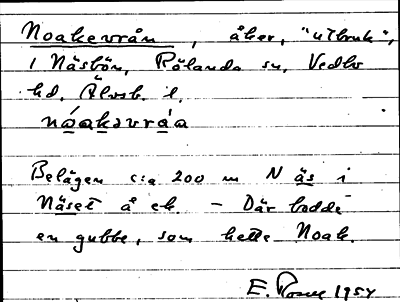 Noakevrån, åker, "utbruk",
i Näsbön, Rölanda sn, Vedbo
hd. Älvsb. l.
nóakəvràa
Belägen c:a 200 m N äs i
Näset å ek. – Där bodde
en gubbe, som hette Noak.
E. 1954